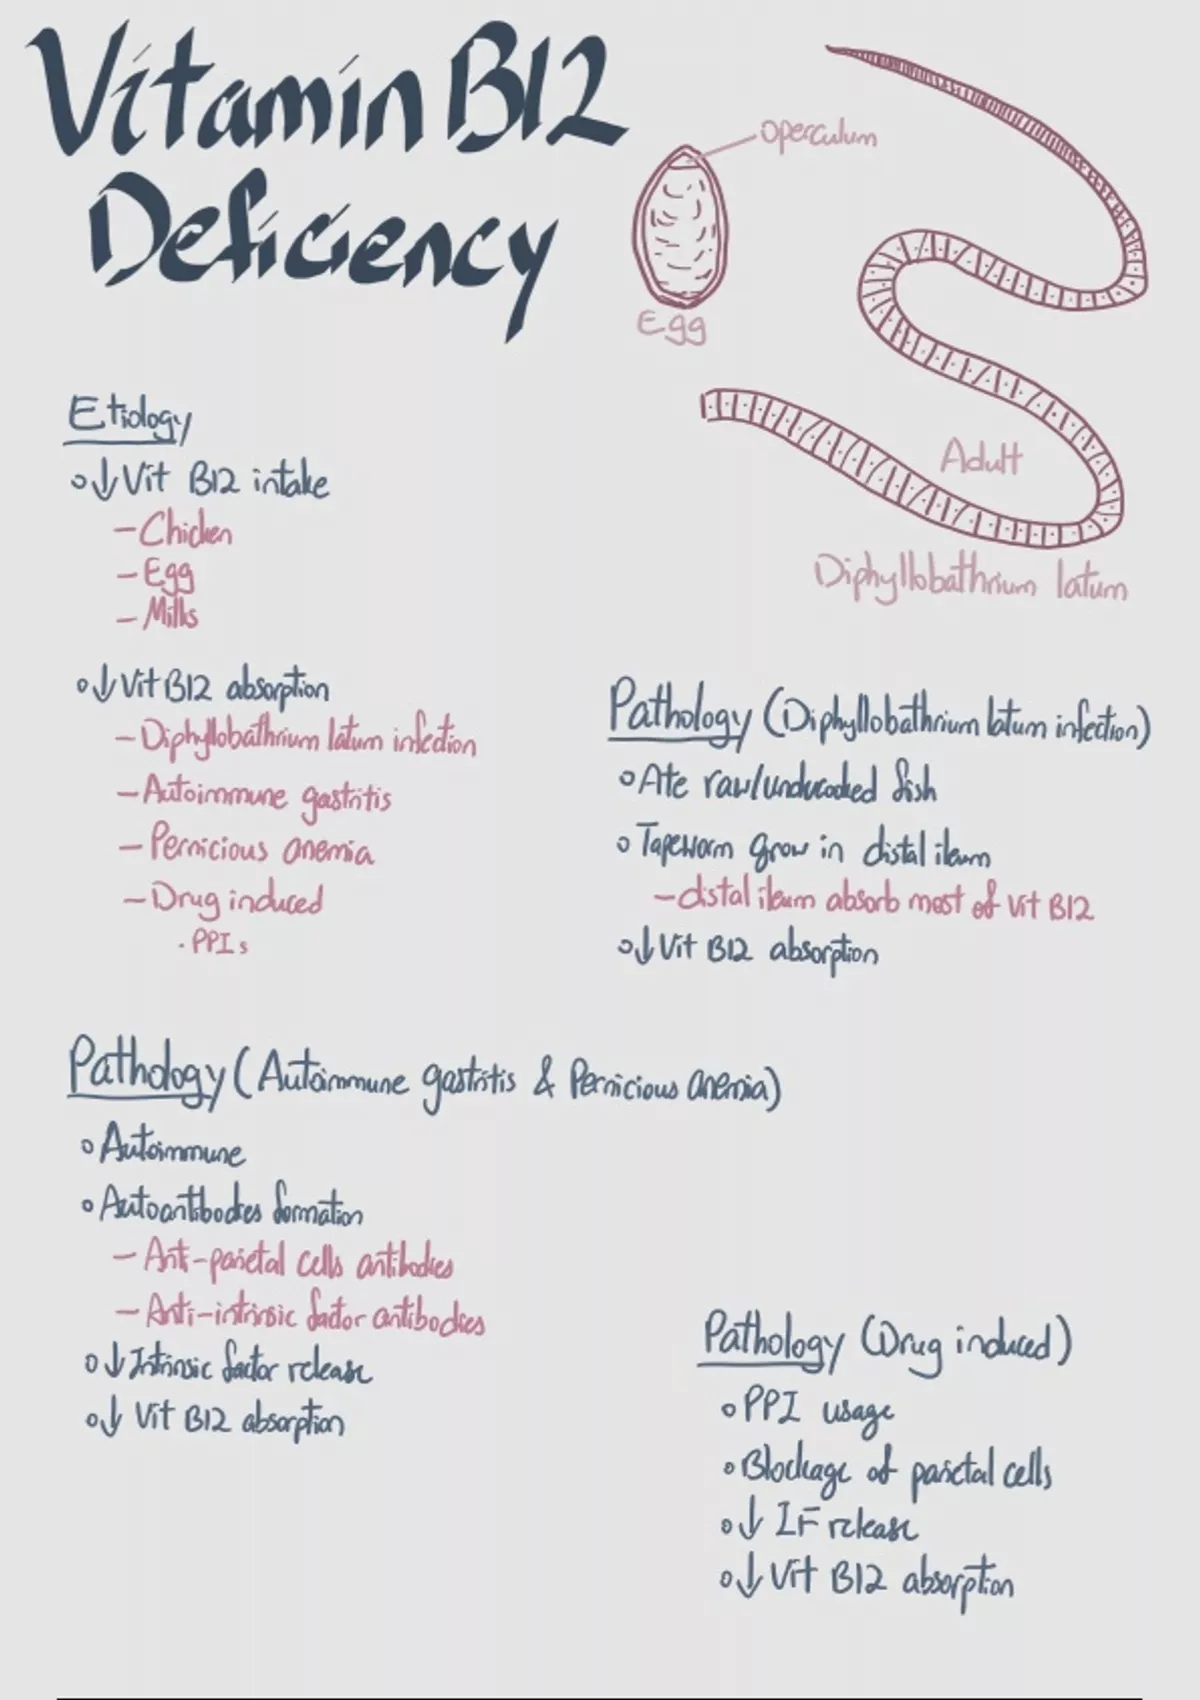 Vitamin B12
Deficiency
operculum
Egg
Adult
Diphyllobathrium latum
Etiology
↓ Vit B12 intake
- Chicken
- Egg
- Milks
↓ Vit B12 absorption
- Diphyllobathrium latum infection
- Autoimmune gastritis
- Pernicious anemia
- Drug induced
· PPIs
Pathology (Diphyllobathrium latum infection)
Ate raw/undercooked fish
Tapeworm grow in distal ileum
- distal ileum absorb most of Vit B12
↓ Vit B12 absorption
Pathology (Autoimmune gastritis & Pernicious anemia)
Autoimmune
Autoantibodies formation
- Anti-parietal cells antibodies
- Anti-intrinsic factor antibodies
↓ Intrinsic factor release
↓ Vit B12 absorption
Pathology (Drug induced)
PPI usage
Blockage of parietal cells
↓ IF release
↓ Vit B12 absorption